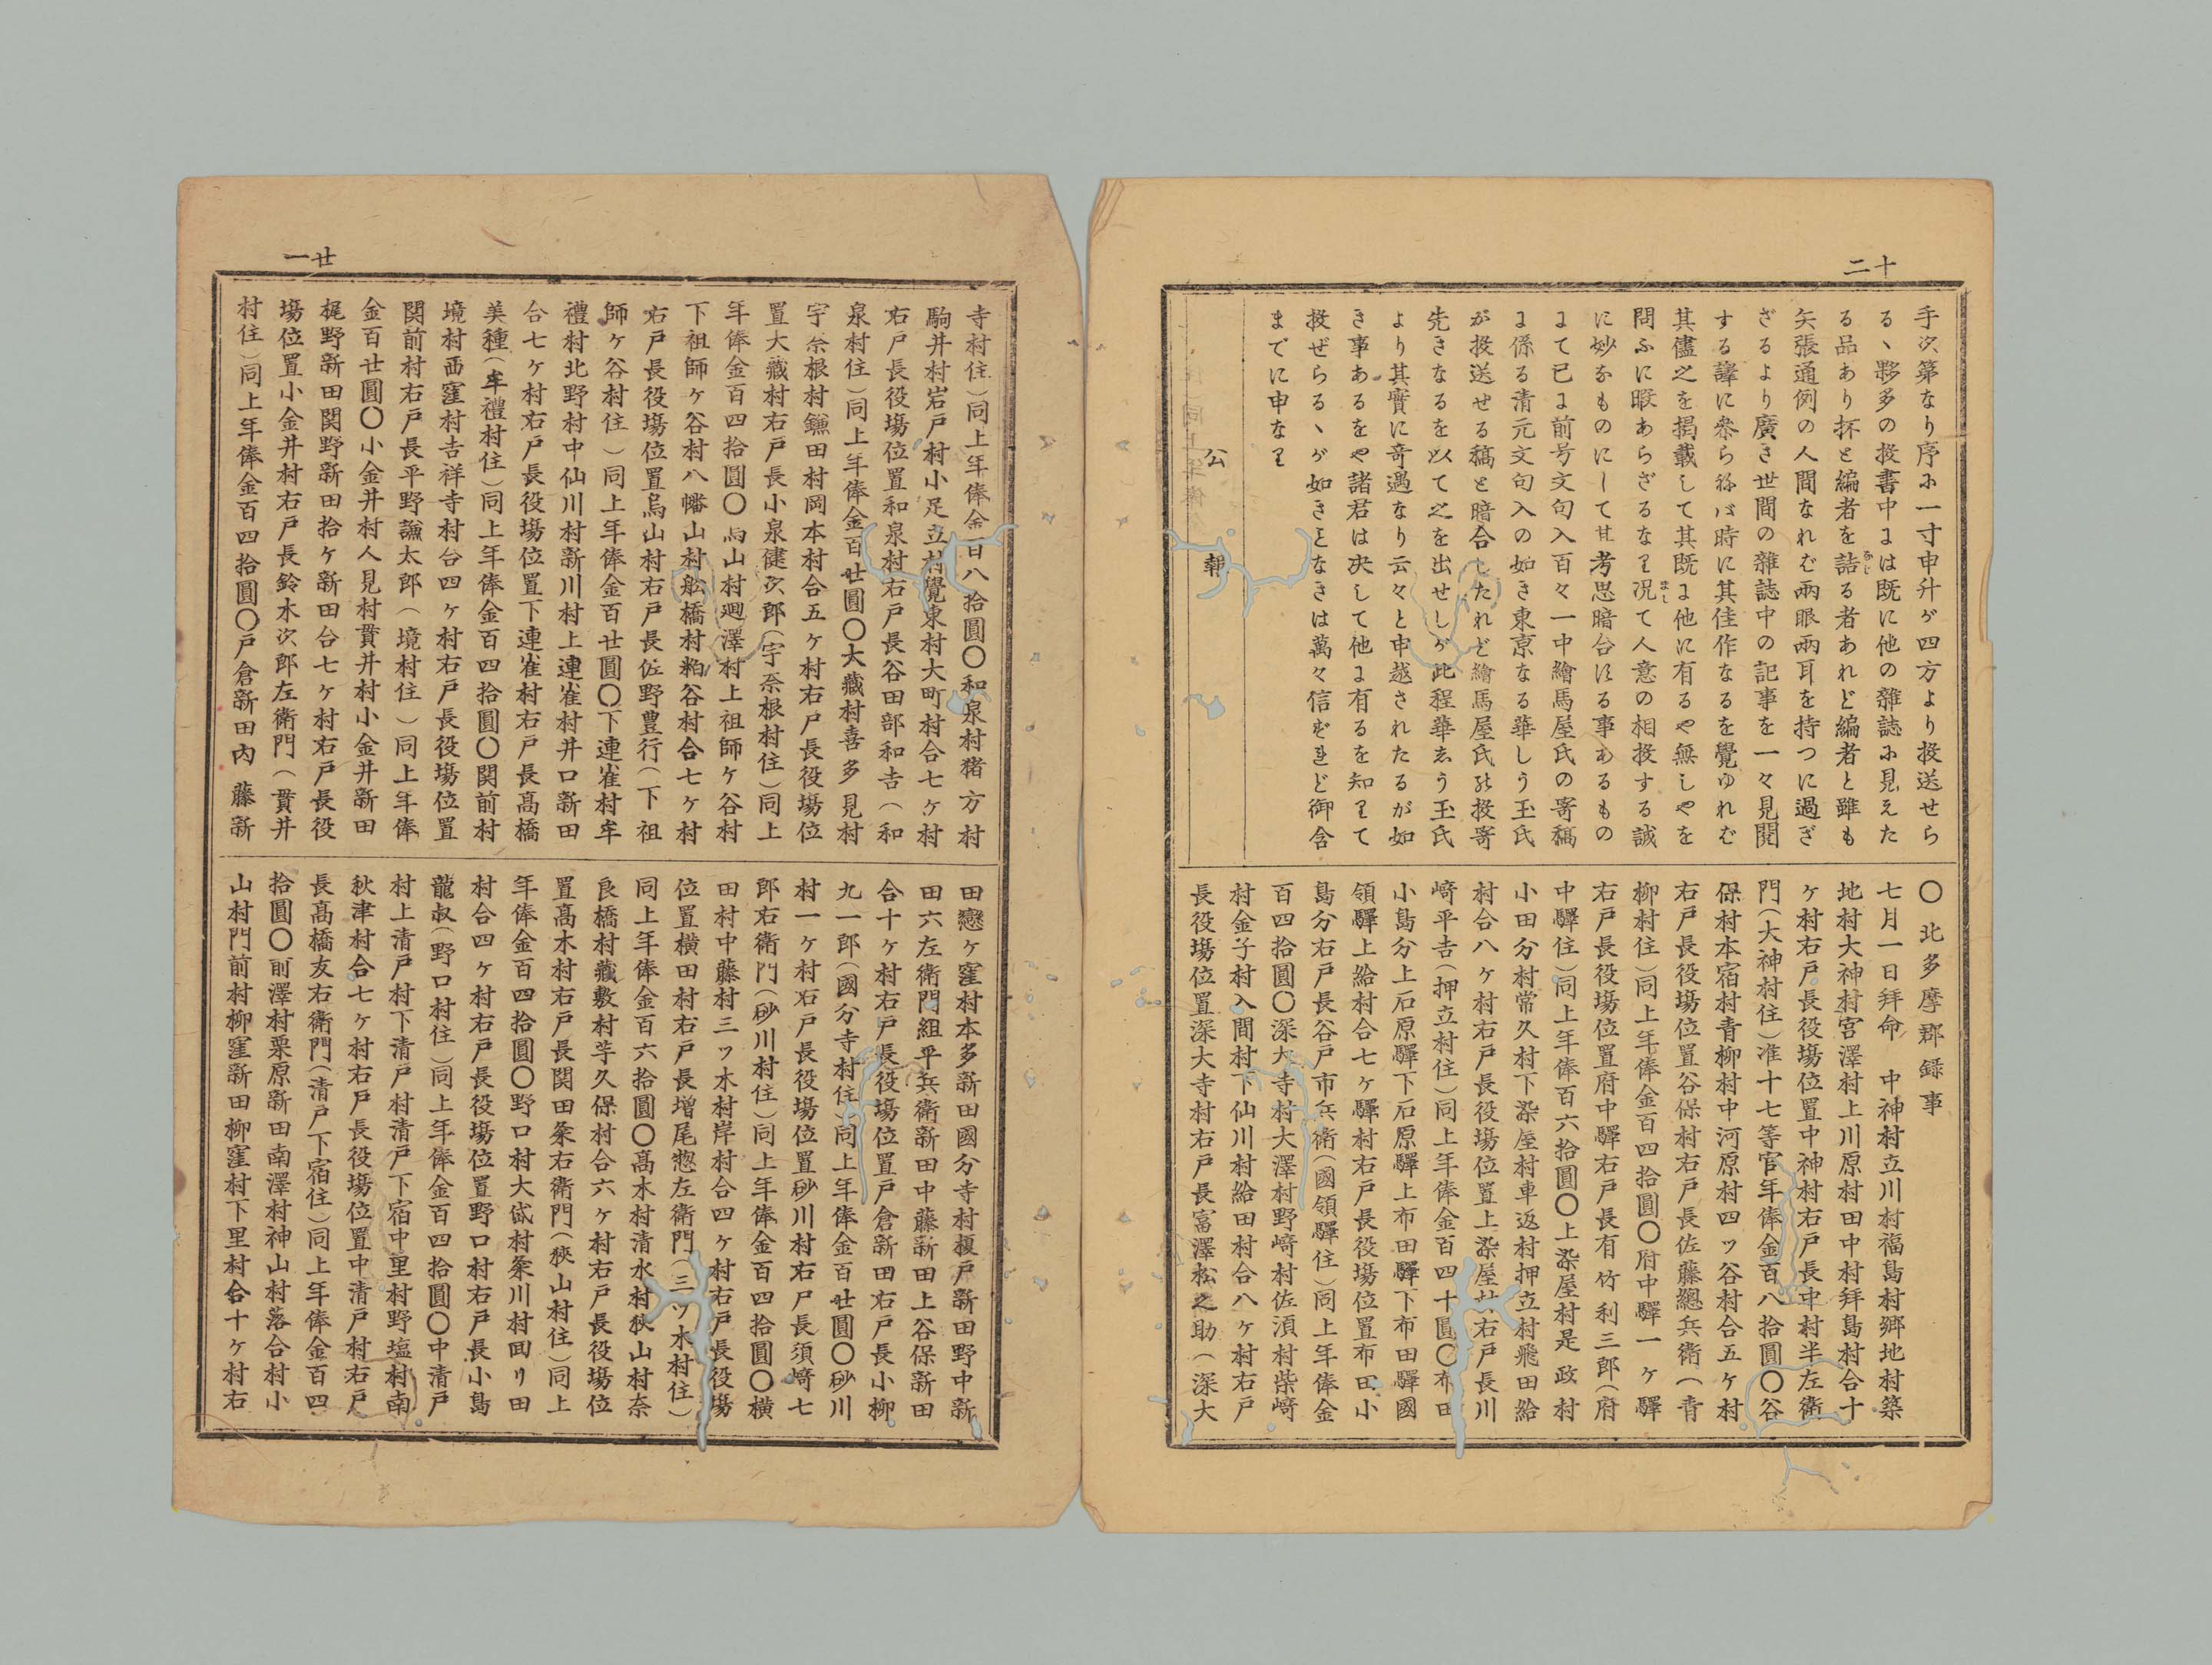 二十
手次第なり序に一寸申升が四方より投送せら
るゝ夥多の投書中には既に他の雜誌に見えた
る品あり抔と編者を詰る者あれど編者と雖も
矢張通例の人間なれば兩眼兩耳を持つに過ぎ
ざるより廣き世間の雜誌中の記事を一々見閲
する譯に參らねバ時に其佳作なるを覺ゆれば
其儘之を掲載して其既に他に有るや無しやを
問ふに暇あらざるなり况て人意の相投する誠
に妙なものにして其考思暗合する事あるもの
にて已に前号文句入百々一中繪馬屋氏の寄稿
に係る清元文句入の如き東京なる華しう玉氏
が投送せる稿と暗合したれど繪馬屋氏の投寄
先きなるを以て之を出せしが此程華しう玉氏
より其實に奇遇なり云々と申越されたるが如
き事あるをや諸君は决して他に有るを知りて
投ぜらるゝが如きことなきは萬々信ずれど御含
までに申なり
公報
〇北多摩郡録事
七月一日拜命　中神村立川村福島村郷地村築
地村大神村宮澤村上川原村田中村拜島村合十
ヶ村右戸長役塲位置中神村右戸長中村半左衛
門（大神村住）准十七等官年俸金百八拾圓〇谷
保村本宿村青柳村中河原村四ッ谷村合五ヶ村
右戸長役塲位置谷保村右戸長佐藤總兵衛（青
柳村住）同上年俸金百四拾圓〇府中驛一ヶ驛
右戸長役塲位置府中驛右戸長有竹利三郎（府
中驛住）同上年俸百六拾圓〇上染屋村是政村
小田分村常久村下染屋村車返村押立村飛田給
村合八ヶ村右戸長役塲位置上染屋村右戸長川
﨑平吉（押立村住）同上年俸金百四十圓〇布田
小島分上石原驛下石原驛上布田驛下布田驛國
領驛上給村合七ヶ驛村右戸長役塲位置布田小
島分右戸長谷戸市兵衛（國領驛住）同上年俸金
百四拾圓〇深大寺村大澤村野﨑村佐湏村柴﨑
村金子村入間村下仙川村給田村合八ヶ村右戸
長役塲位置深大寺村右戸長富澤松之助（深大
廿一
寺村住）同上年俸金百八拾圓〇和泉村猪方村
駒井村岩戸村小足立村覺東村大町村合七ヶ村
右戸長役塲位置和泉村右戸長谷田部和吉（和
泉村住）同上年俸金百廿圓〇大藏村喜多見村
宇奈根村鎌田村岡本村合五ヶ村右戸長役塲位
置大藏村右戸長小泉健次郎（宇奈根村住）同上
年俸金百四拾圓〇烏山村廻澤村上祖師ヶ谷村
下祖師ヶ谷村八幡山村舩橋村粕谷村合七ヶ村
右戸長役塲位置烏山村右戸長佐野豊行（下祖
師ヶ谷村住）同上年俸金百廿圓〇下連雀村牟
禮村北野村中仙川村新川村上連雀村井口新田
合七ヶ村右戸長役塲位置下連雀村右戸長髙橋
美種（牟禮村住）同上年俸金百四拾圓〇関前村
境村西窪村吉祥寺村合四ヶ村右戸長役塲位置
関前村右戸長平野讌太郎（境村住）同上年俸
金百廿圓〇小金井村人見村貫井村小金井新田
梶野新田関野新田拾ヶ新田合七ヶ村右戸長役
塲位置小金井村右戸長鈴木次郎左衛門（貫井
村住）同上年俸金百四拾圓〇戸倉新田内藤新
田戀ヶ窪村本多新田國分寺村榎戸新田野中新
田六左衛門組平兵衛新田中藤新田上谷保新田
合十ヶ村右戸長役塲位置戸倉新田右戸長小柳
九一郎（國分寺村住）同上年俸金百廿圓〇砂川
村一ヶ村右戸長役塲位置砂川村右戸長須﨑七
郎右衛門（砂川村住）同上年俸金百四拾圓〇横
田村中藤村三ッ木村岸村合四ヶ村右戸長役塲
位置横田村右戸長増尾惣左衛門（三ツ木村住）
同上年俸金百六拾圓〇髙木村清水村狹山村奈
良橋村藏敷村芋久保村合六ヶ村右戸長役塲位
置髙木村右戸長関田粂右衛門（狹山村住）同上
年俸金百四拾圓〇野口村大岱村粂川村回り田
村合四ヶ村右戸長役塲位置野口村右戸長小島
龍叔（野口村住）同上年俸金百四拾圓〇中清戸
村上清戸村下清戸村清戸下宿中里村野塩村南
秋津村合七ヶ村右戸長役塲位置中清戸村右戸
長髙橋友右衛門（清戸下宿住）同上年俸金百四
拾圓〇前澤村栗原新田南澤村神山村落合村小
山村門前村柳窪新田柳窪村下里村合十ヶ村右